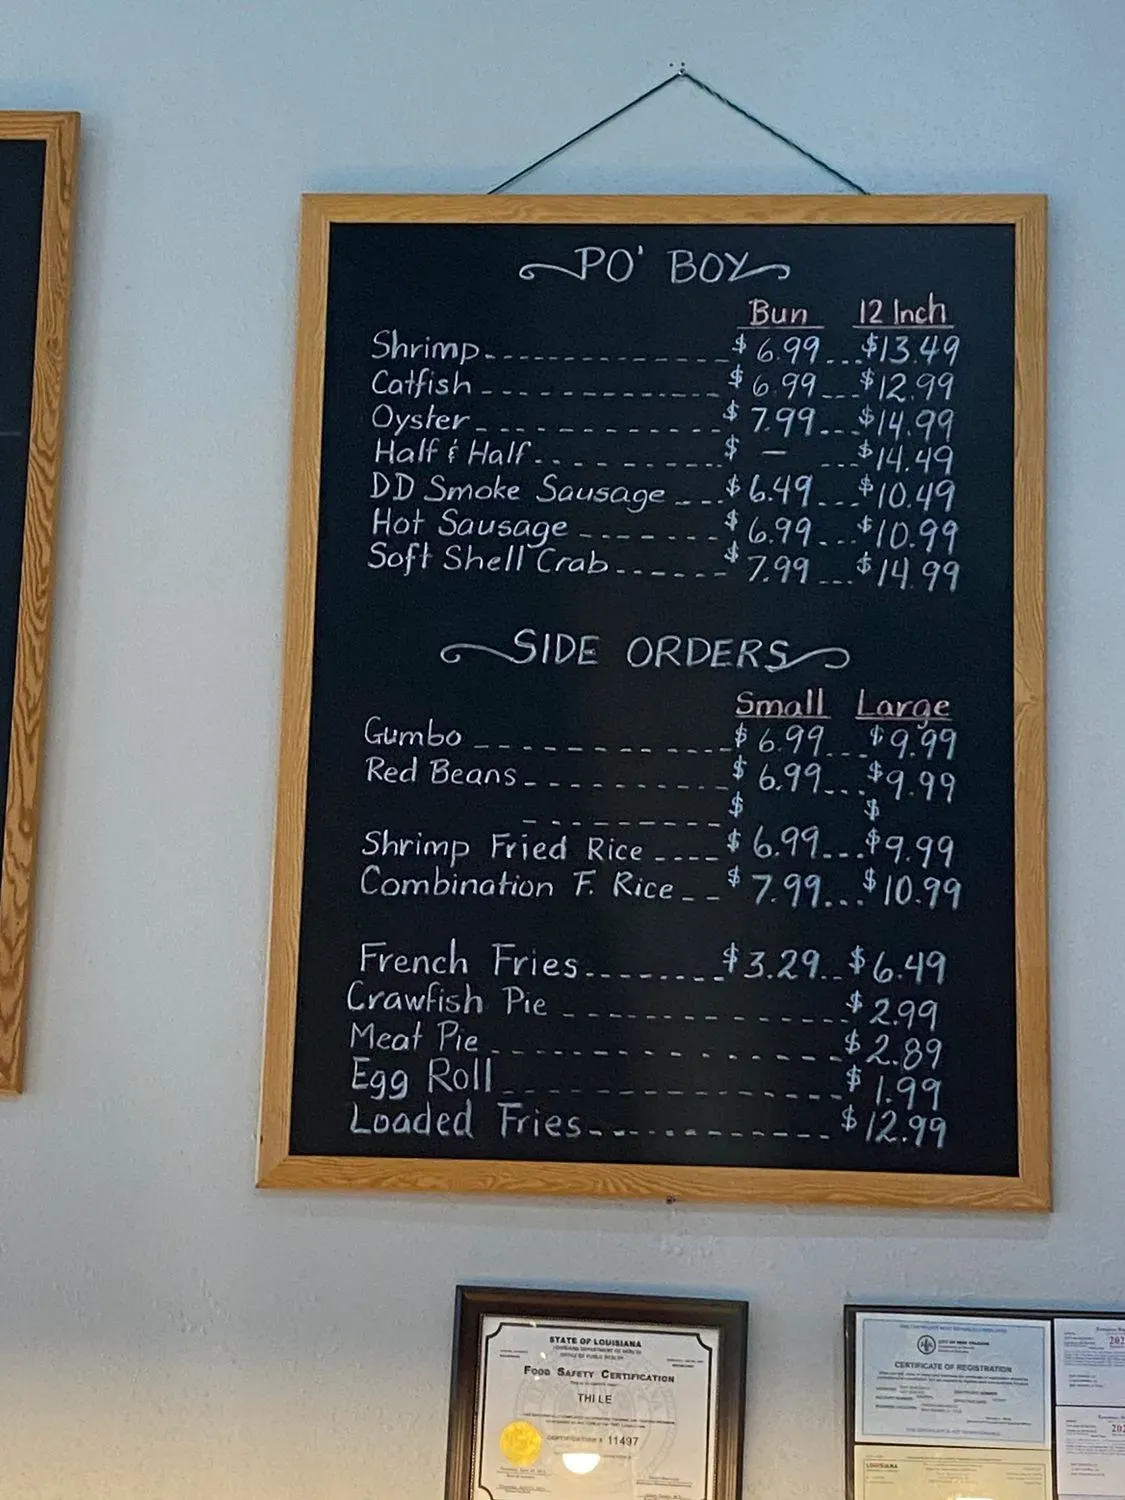 PO' BOY
Bun 12 Inch
Shrimp $6.99 $13.49
Catfish $6.99 $12.99
Oyster $7.99 $14.99
Half & Half $ — $14.49
DD Smoke Sausage $6.49 $10.49
Hot Sausage $6.99 $10.99
Soft Shell Crab $7.99 $14.99
SIDE ORDERS
Small Large
Gumbo $6.99 $9.99
Red Beans $6.99 $9.99
$ $
Shrimp Fried Rice $6.99 $9.99
Combination F. Rice $7.99 $10.99
French Fries $3.29 $6.49
Crawfish Pie $2.99
Meat Pie $2.89
Egg Roll $1.99
Loaded Fries $12.99
STATE OF LOUISIANA
LOUISIANA DEPARTMENT OF HEALTH
OFFICE OF PUBLIC HEALTH
FOOD SAFETY CERTIFICATION
THI LE
CERTIFICATION # 11497
CITY OF NEW ORLEANS
CERTIFICATE OF REGISTRATION
LOUISIANA